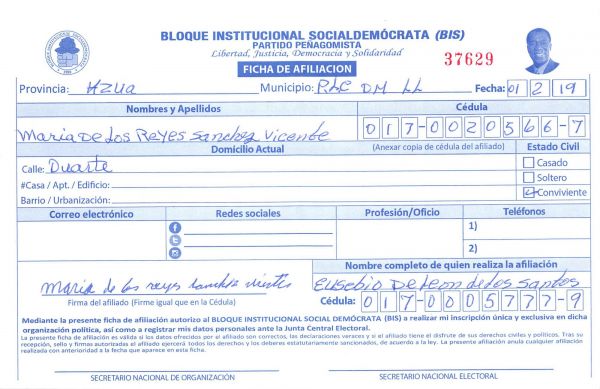 BLOQUE INSTITUCIONAL SOCIALDEMÓCRATA (BIS)
PARTIDO PEÑAGOMISTA
Libertad, Justicia, Democracia y Solidaridad
37629
FICHA DE AFILIACION
Provincia: Azua Municipio: P.L.C D.M LL Fecha: 01 2 19
Nombres y Apellidos Cédula
Maria De Los Reyes Sanchez Vicente 017-0020566-7
Domicilio Actual (Anexar copia de cédula del afiliado) Estado Civil
Calle: Duarte Casado
#Casa / Apt. / Edificio: Soltero
Barrio / Urbanización: Conviviente
Correo electrónico Redes sociales Profesión/Oficio Teléfonos
1)
2)
Nombre completo de quien realiza la afiliación
maria de los reyes sanchez Eusebio De Leon de los Santos
Firma del afiliado (Firme igual que en la Cédula) Cédula: 017-0005777-9
Mediante la presente ficha de afiliación autorizo al BLOQUE INSTITUCIONAL SOCIAL DEMÓCRATA (BIS) a realizar mi inscripción única y exclusiva en dicha
organización política, así como a registrar mis datos personales ante la Junta Central Electoral.
La presente ficha de afiliación es válida si los datos ofrecidos por el afiliado son correctos, las declaraciones veraces y si el titular tiene el disfrute de sus derechos civiles y políticos. Tras su
recepción, sello y firmas autorizadas el afiliado ejercerá todos los derechos y los deberes estatutariamente sancionados, de acuerdo a la ley. La presente afiliación anula cualquier afiliación
realizada con anterioridad a la fecha que aparece en esta ficha.
SECRETARIO NACIONAL DE ORGANIZACIÓN SECRETARIO NACIONAL ELECTORAL